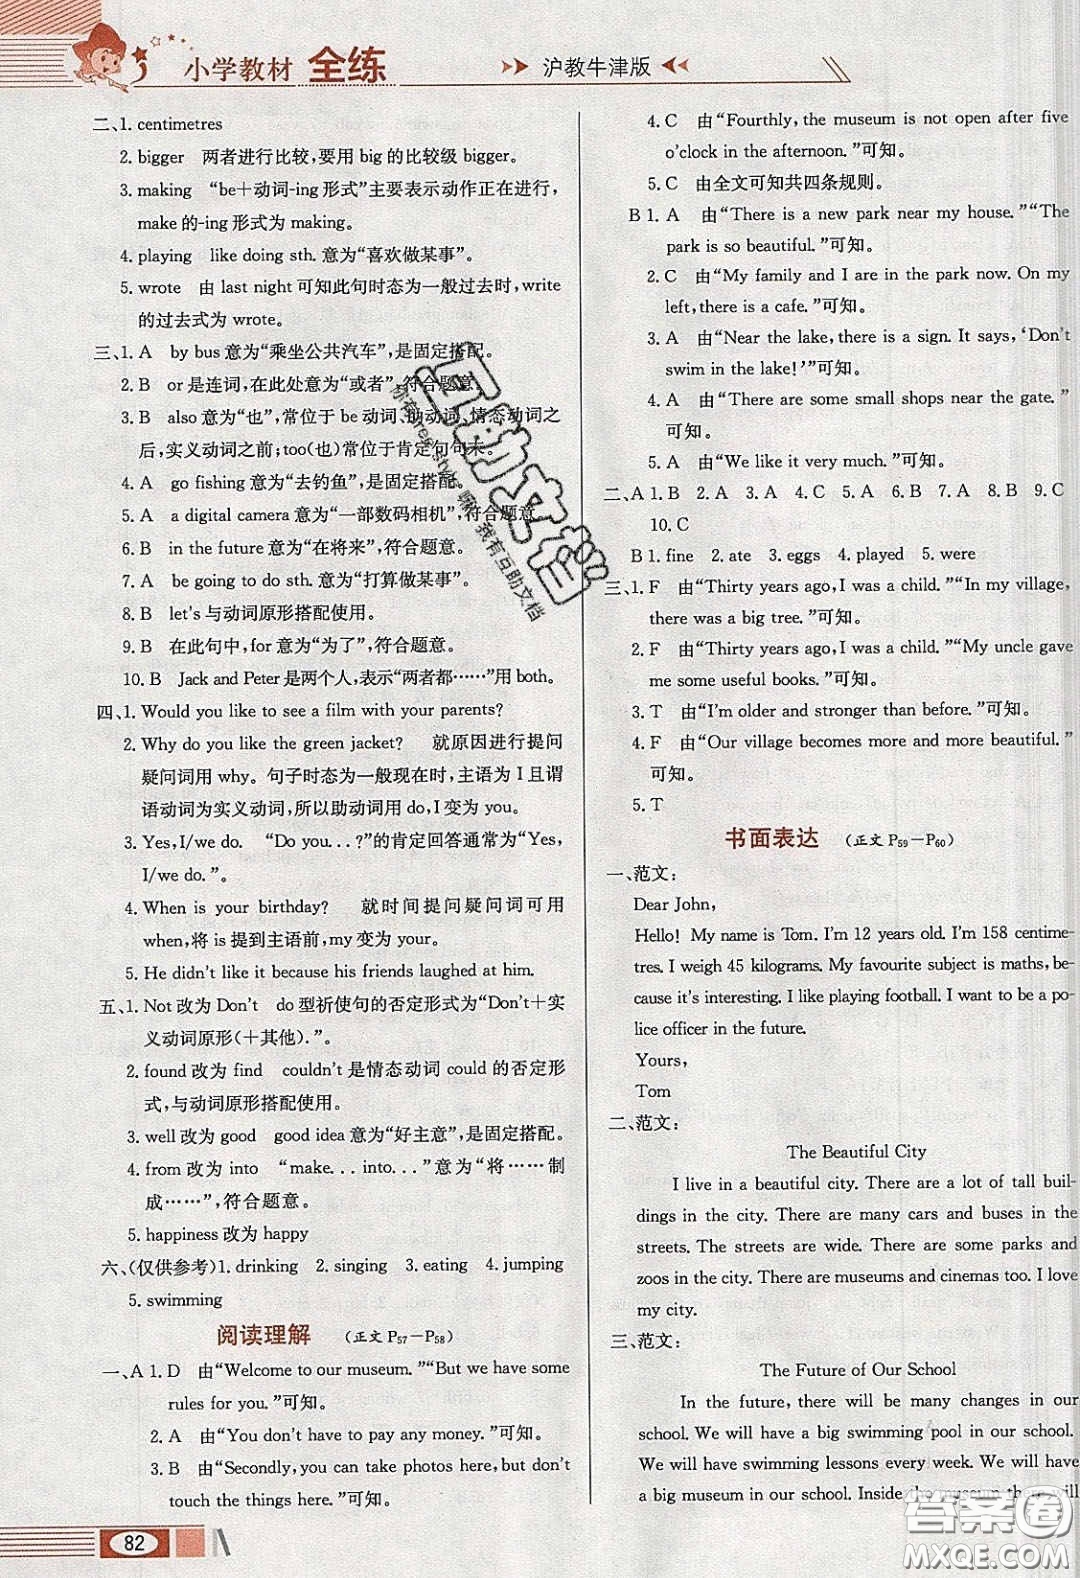 小学教材 全练
沪教牛津版
二、1. centimetres
2. bigger 两者进行比较,要用 big 的比较级 bigger。
3. making “be+动词-ing 形式”主要表示动作正在进行,
make 的-ing 形式为 making。
4. playing like doing sth. 意为“喜欢做某事”。
5. wrote 由 last night 可知此句时态为一般过去时,write
的过去式为 wrote。
三、1. A by bus 意为“乘坐公共汽车”,是固定搭配。
2. B or 是连词,在此处意为“或者”,符合题意。
3. B also 意为“也”,常位于 be 动词、助动词、情态动词之
后,实义动词之前;too(也)常位于肯定句句末。
4. A go fishing 意为“去钓鱼”,是固定搭配。
5. A a digital camera 意为“一部数码相机”,符合题意。
6. B in the future 意为“在将来”,符合题意。
7. A be going to do sth. 意为“打算做某事”。
8. B let's 与动词原形搭配使用。
9. B 在此句中,for 意为“为了”,符合题意。
10. B Jack and Peter 是两个人,表示“两者都……”用 both。
四、1. Would you like to see a film with your parents?
2. Why do you like the green jacket? 就原因进行提问
疑问词用 why。句子时态为一般现在时,主语为 I 且谓
语动词为实义动词,所以助动词用 do,I 变为 you。
3. Yes,I/we do. “Do you...?”的肯定回答通常为“Yes,
I/we do.”。
4. When is your birthday? 就时间提问疑问词可用
when,将 is 提到主语前,my 变为 your。
5. He didn't like it because his friends laughed at him.
五、1. Not 改为 Don't do 型祈使句的否定形式为“Don't+实
义动词原形(+其他).”。
2. found 改为 find couldn't 是情态动词 could 的否定形
式,与动词原形搭配使用。
3. well 改为 good good idea 意为“好主意”,是固定搭配。
4. from 改为 into “make...into...”意为“将……制
成……”,符合题意。
5. happiness 改为 happy
六、(仅供参考)1. drinking 2. singing 3. eating 4. jumping
5. swimming
阅读理解 (正文 P57-P58)
一、A 1. D 由“Welcome to our museum.”“But we have some
rules for you.”可知。
2. A 由“You don't have to pay any money.”可知。
3. B 由“Secondly,you can take photos here, but don't
touch the things here.”可知。
82
4. C 由“Fourthly, the museum is not open after five
o'clock in the afternoon.”可知。
5. C 由全文可知共四条规则。
B 1. A 由“There is a new park near my house.”“The
park is so beautiful.”可知。
2. C 由“My family and I are in the park now. On my
left,there is a cafe.”可知。
3. A 由“Near the lake,there is a sign. It says,‘Don't
swim in the lake!’”可知。
4. A 由“There are some small shops near the gate.”
可知。
5. A 由“We like it very much.”可知。
二、A 1. B 2. A 3. A 4. C 5. A 6. B 7. A 8. B 9. C
10. C
B 1. fine 2. ate 3. eggs 4. played 5. were
三、1. F 由“Thirty years ago,I was a child.”“In my village,
there was a big tree.”可知。
2. F 由“Thirty years ago,I was a child.”“My uncle gave
me some useful books.”可知。
3. T 由“I'm older and stronger than before.”可知。
4. F 由“Our village becomes more and more beautiful.”
可知。
5. T
书面表达 (正文 P59-P60)
一、范文:
Dear John,
Hello! My name is Tom. I'm 12 years old. I'm 158 centime-
tres. I weigh 45 kilograms. My favourite subject is maths, be-
cause it's interesting. I like playing football. I want to be a po-
lice officer in the future.
Yours,
Tom
二、范文:
The Beautiful City
I live in a beautiful city. There are a lot of tall buil-
dings in the city. There are many cars and buses in the
streets. The streets are wide. There are some parks and
zoos in the city. There are museums and cinemas too. I love
my city.
三、范文:
The Future of Our School
In the future, there will be many changes in our
school. We will have a big swimming pool in our school.
We will have swimming lessons every week. We will have
a big museum in our school. Inside the museum there will
答案圈
MXQE.COM